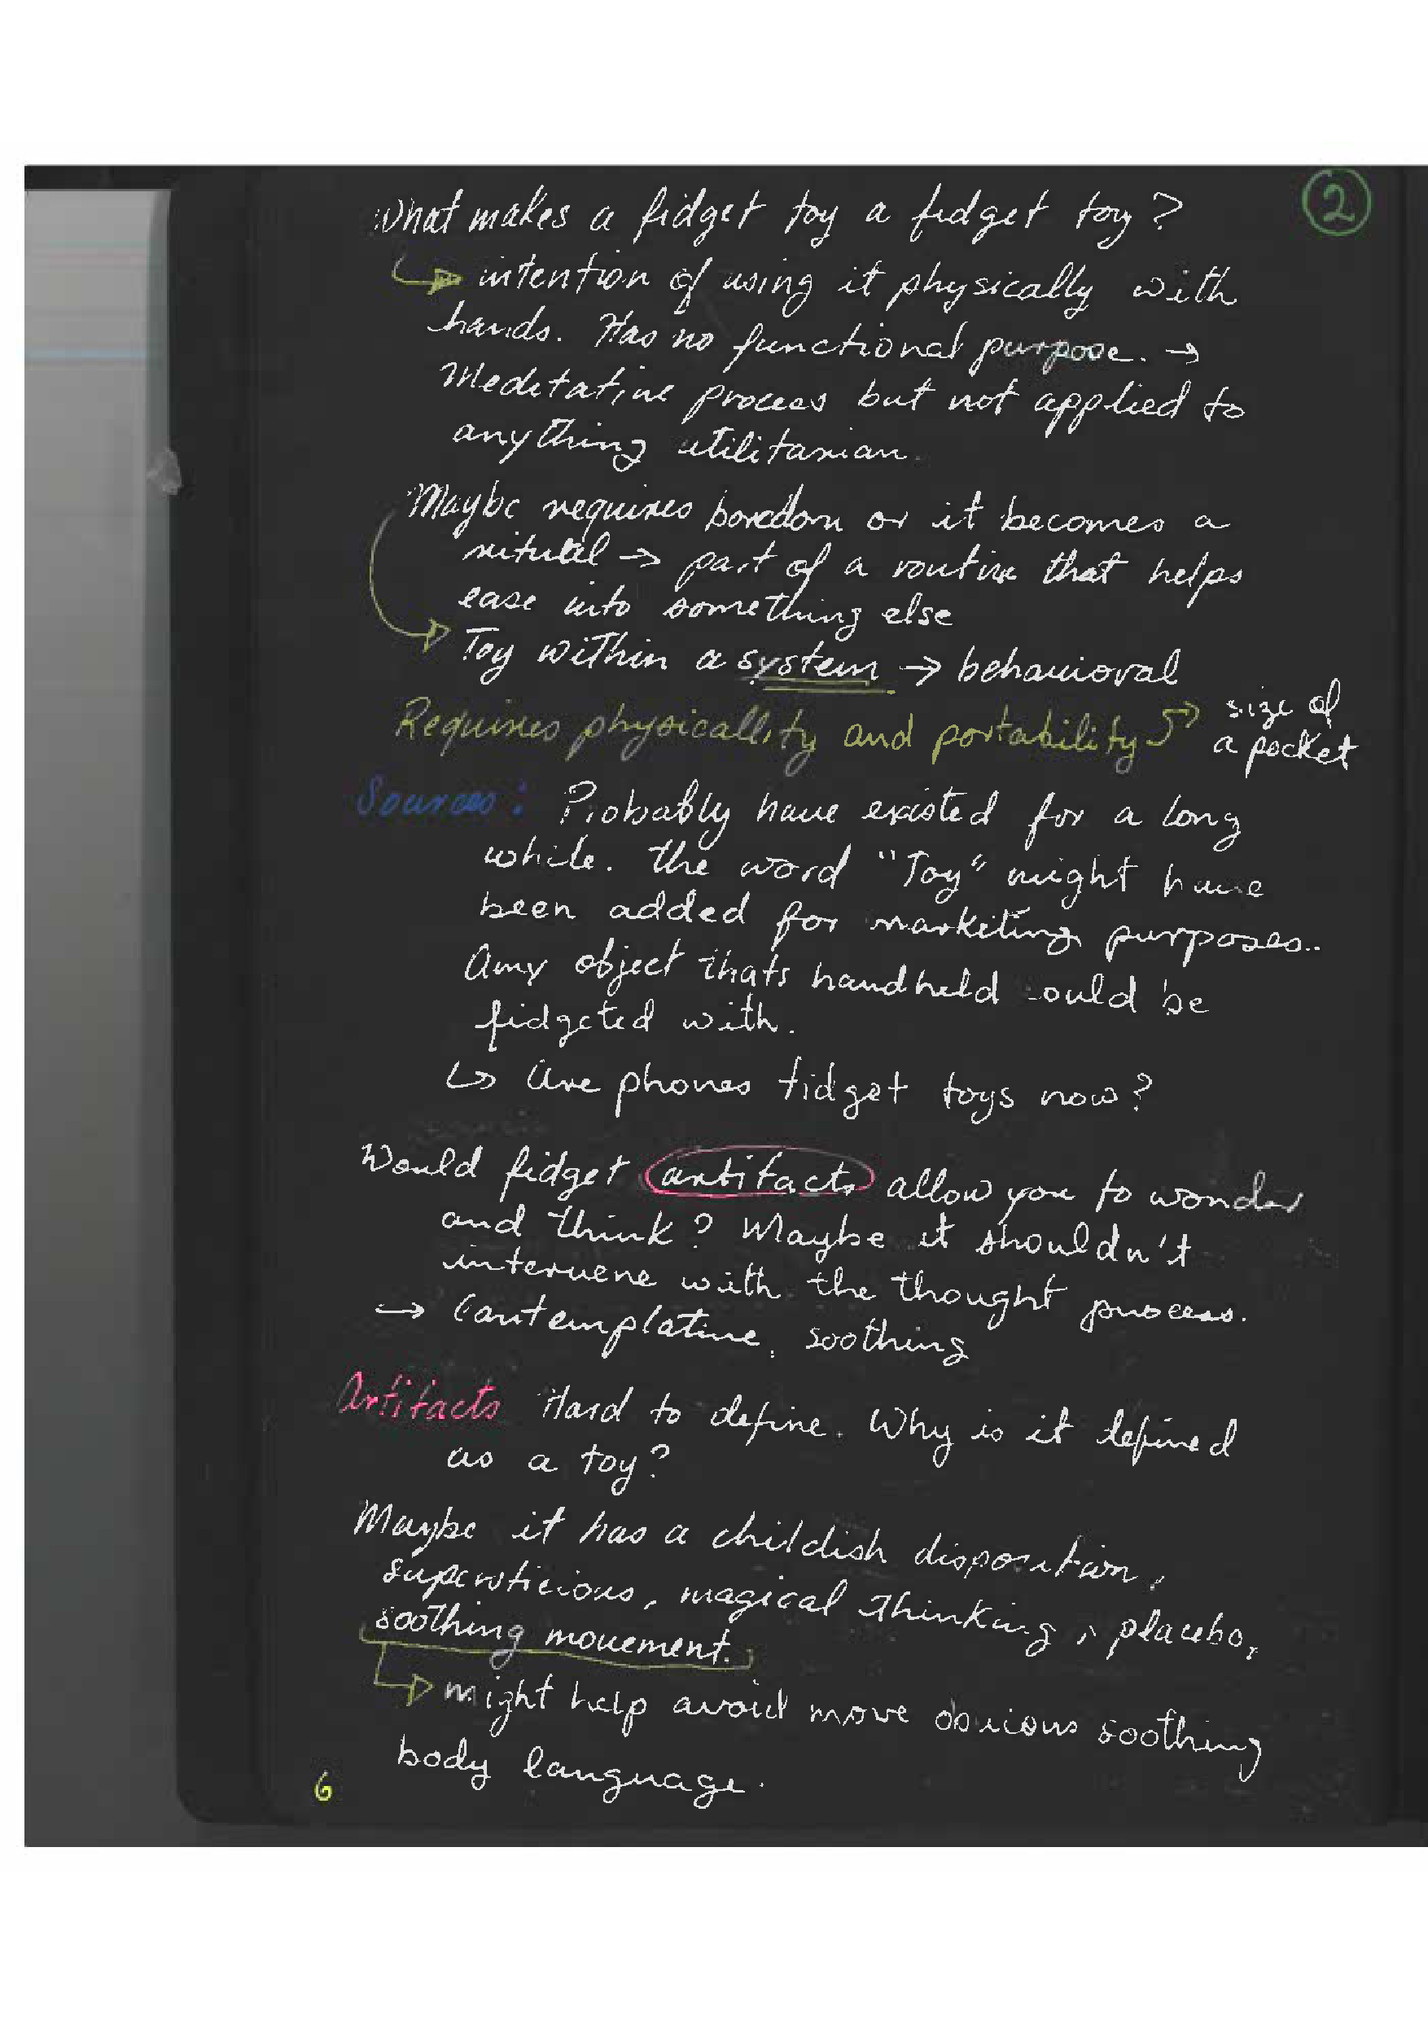 2
What makes a fidget toy a fidget toy?
↳ intention of using it physically with
hands. Has no functional purpose. →
Meditative process but not applied to
anything utilitarian.
Maybe requires boredom or it becomes a
ritual → part of a routine that helps
ease into something else
→ Toy within a system → behavioral
Requires physicallity and portability → size of
a pocket
Sources: Probably have existed for a long
while. The word "Toy" might have
been added for marketing purposes..
Any object thats handheld could be
fidgeted with.
↳ Are phones fidget toys now?
Would fidget artifacts allow you to wonder
and think? Maybe it shouldn't
intervene with the thought process.
→ Contemplative, soothing
Artifacts Hard to define. Why is it defined
as a toy?
Maybe it has a childish disposition,
supersticious, magical thinking, placebo,
soothing movement.
↳ might help avoid more obvious soothing
body language.
6